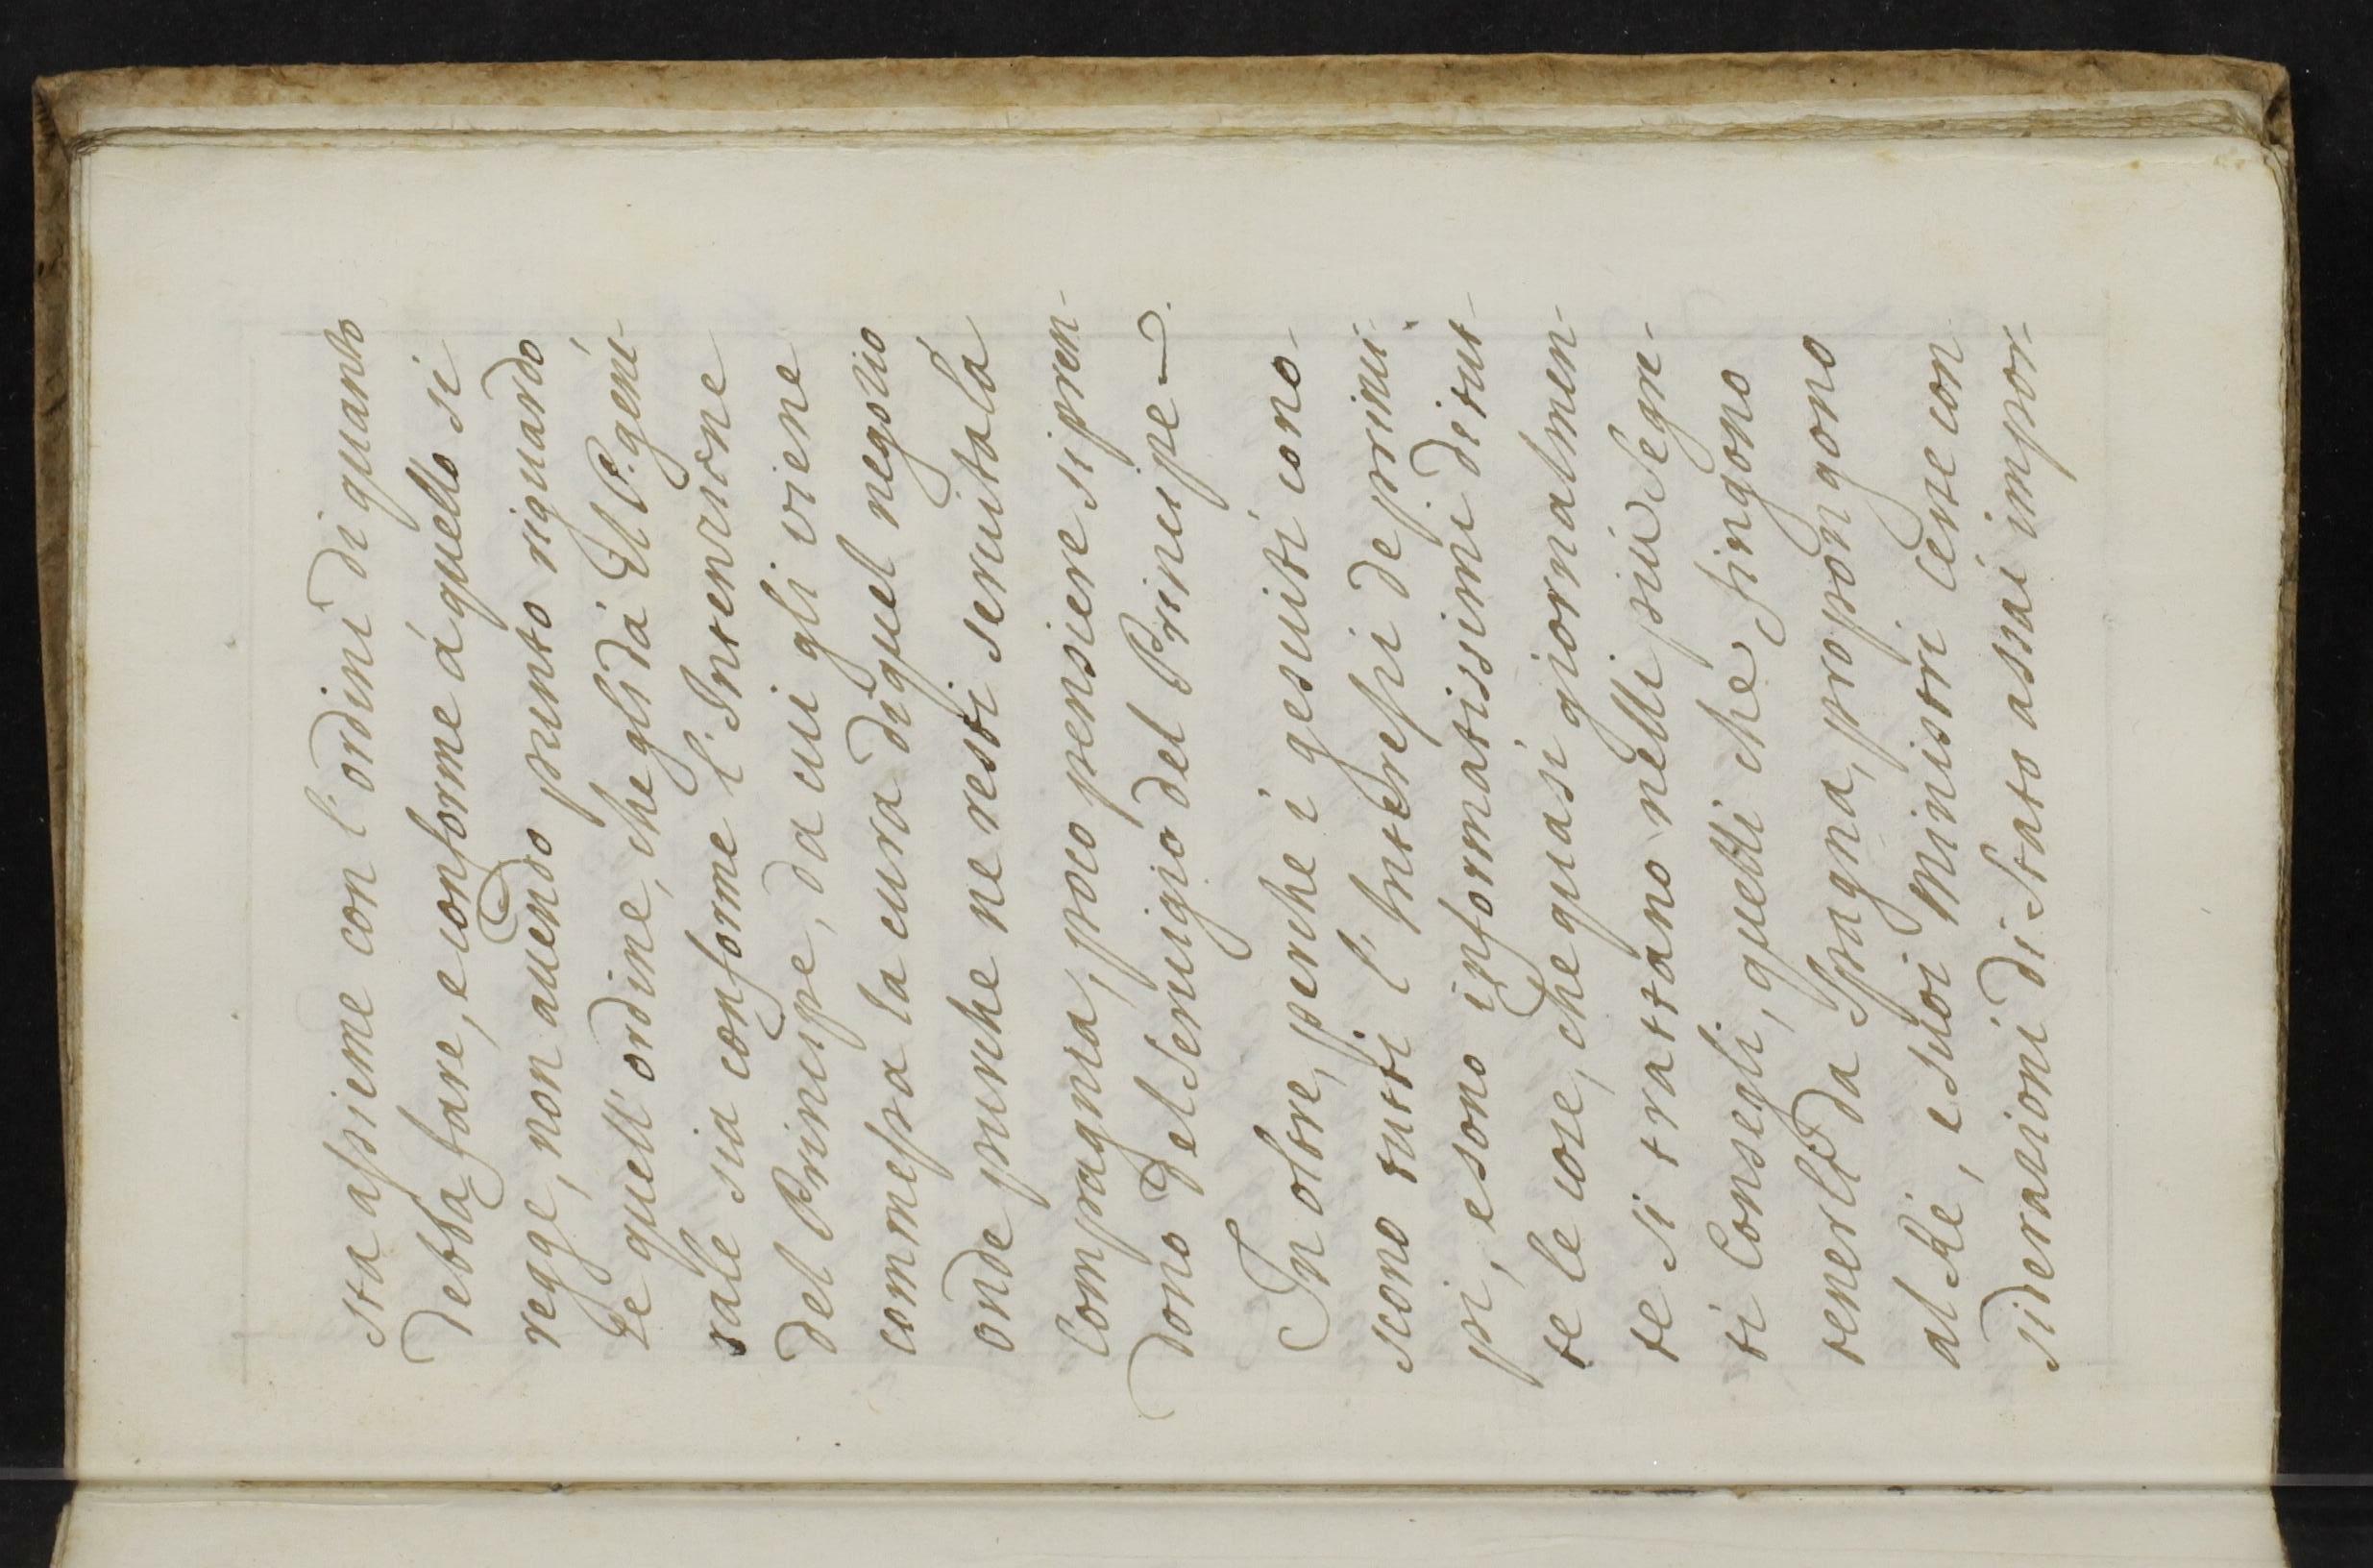 sta assieme con l'ordini di quanto
debba fare, e conforme á quello si
regge, non auendo punto riguardo
se quell'ordine, che gli dá il P. gene-
rale sia conforme l'Intenzione
del Principe, da cui gli viene
commessa la cura di quel negozio
onde purche ne resti seruita la
Compagnia, poco pensiere si pren-
dono del seruigio del Principe
In oltre, perche i gesuiti cono-
scono tutti l'Interessi de prinui-
pi, e sono informatissimi di tut-
te le cose, che quasi giornalmen-
te si trattano nelli piu Segre-
ti Consegli, quelli che fingono
tenerla da Spagna, propongono
al Rè, e suoi Ministri certe con-
siderazioni di Stato assai impor-